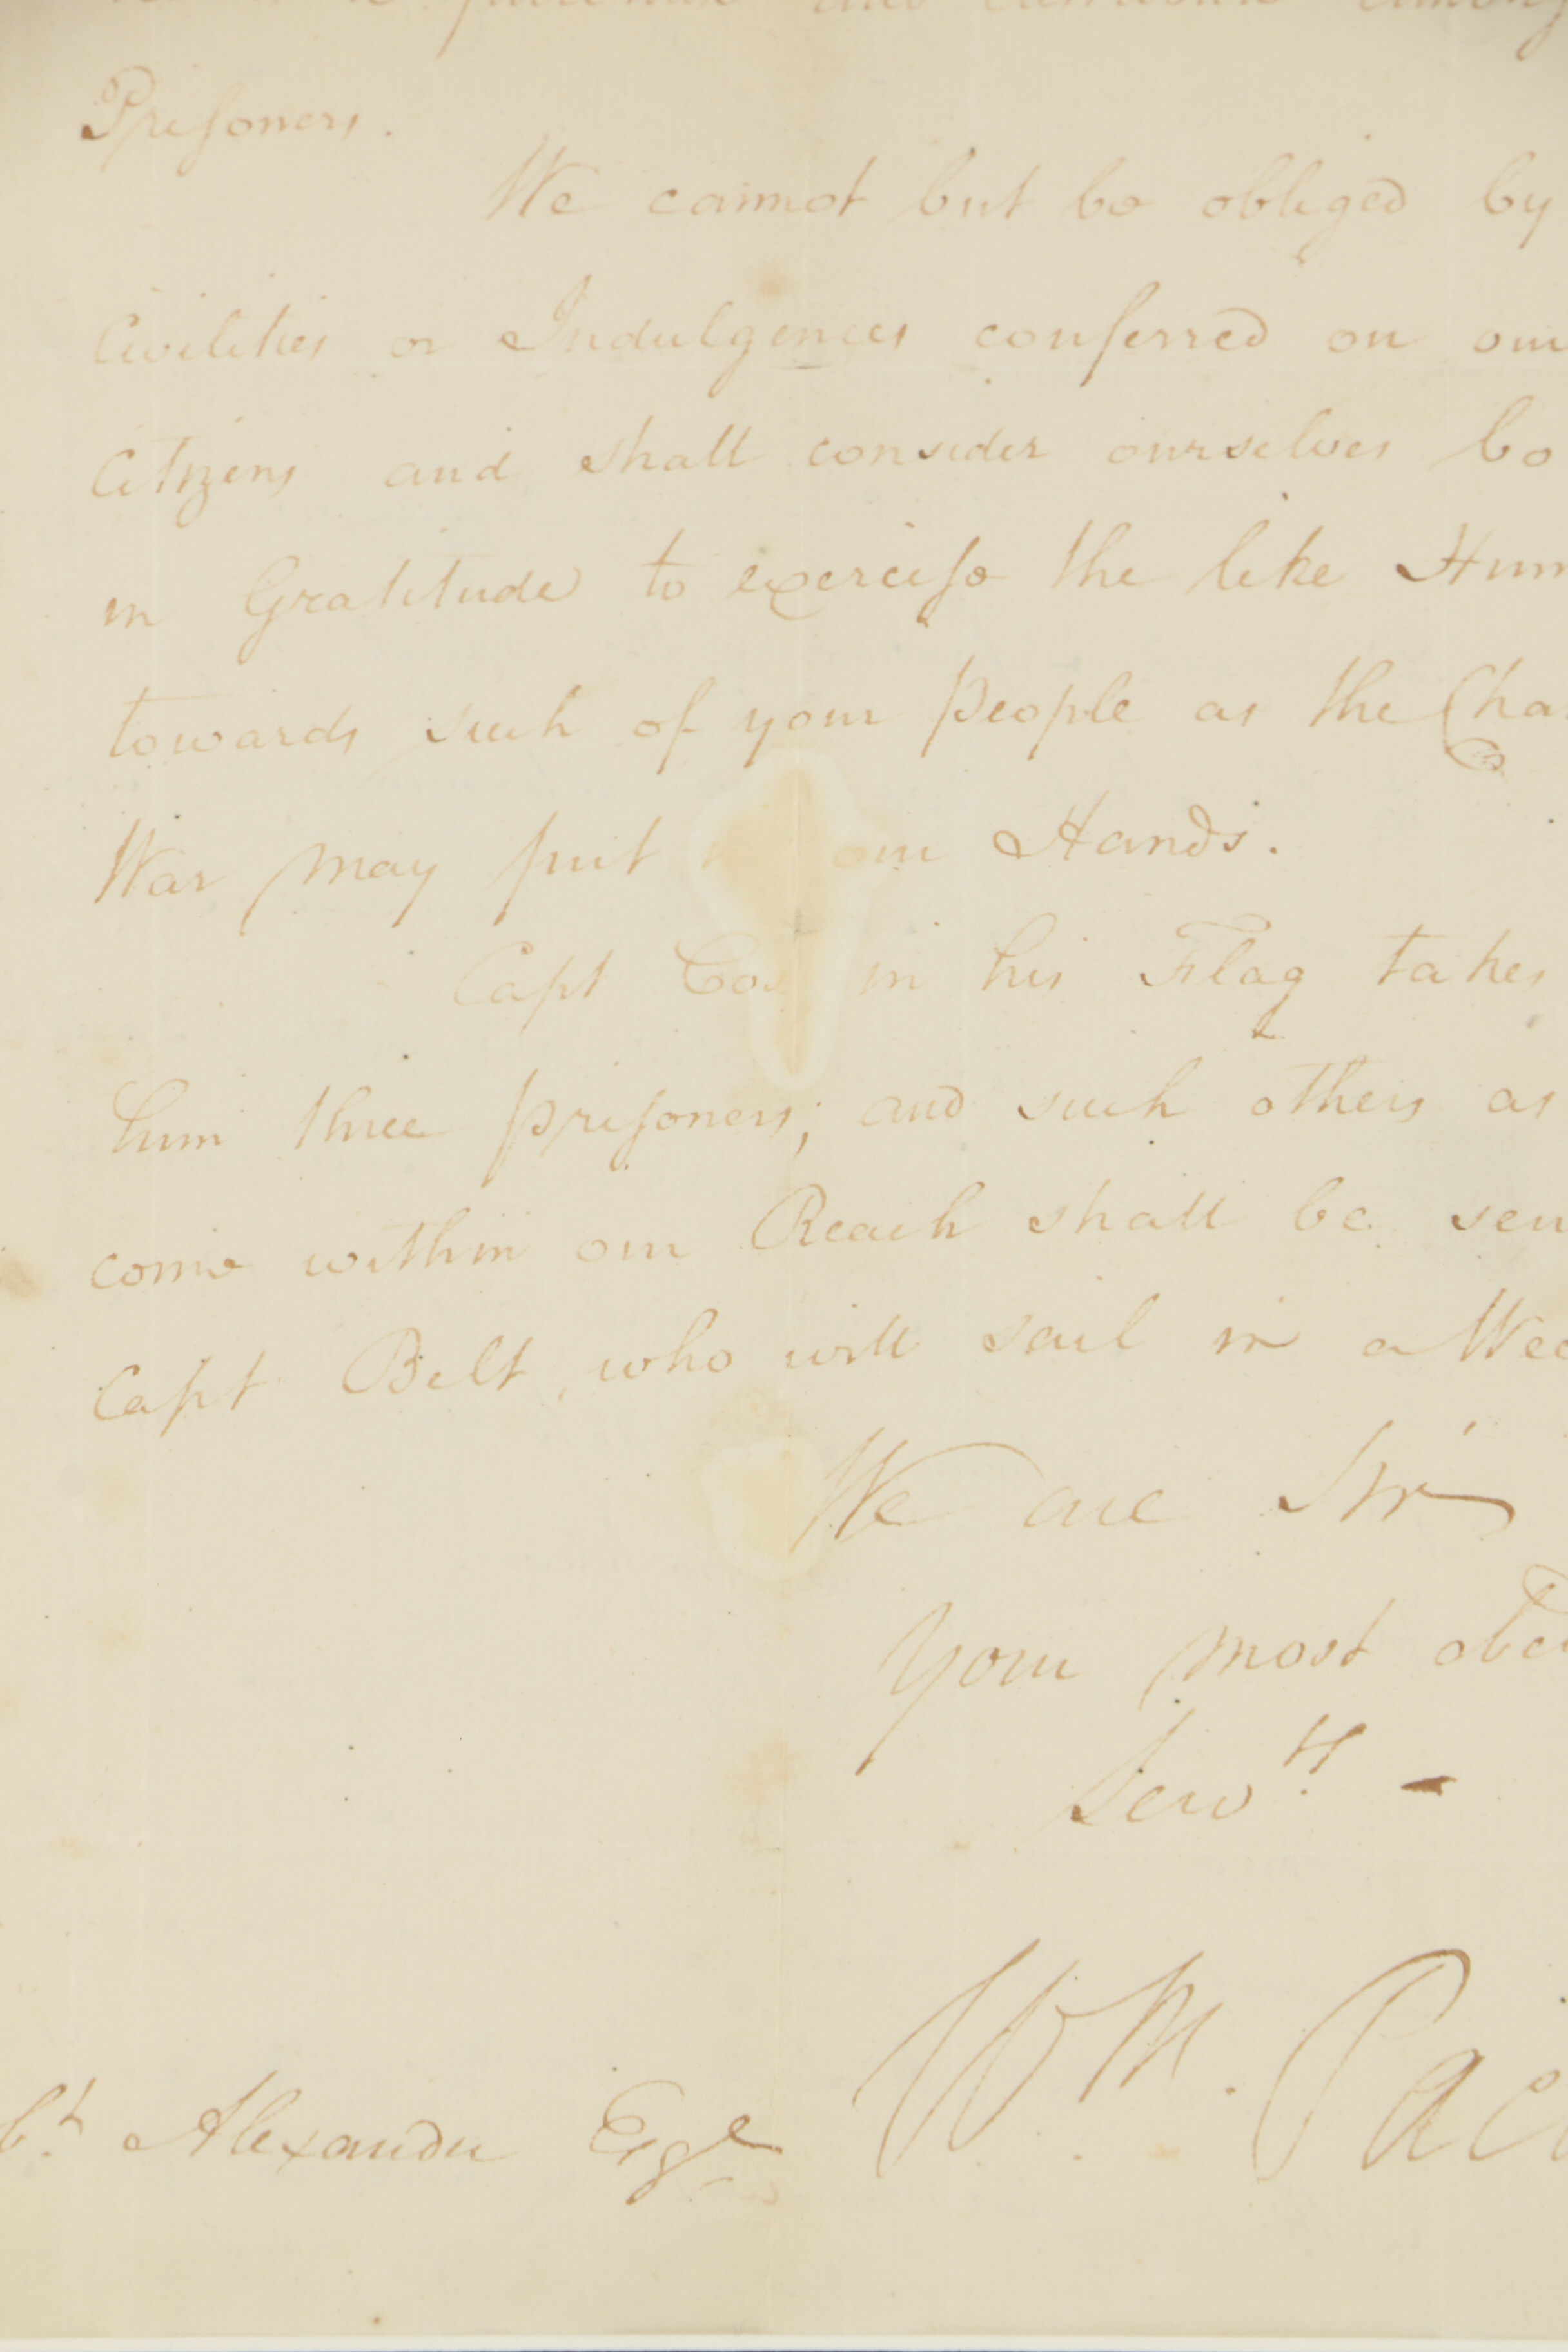 Prisoners.
We cannot but be obliged by
Civilities or Indulgences conferred on our
Citizens and shall consider ourselves bo
in Gratitude to exercise the like Hum
towards such of your People as the Cha
War may put our Hands.
Capt in his Flag takes
him three prisoners; and such others as
come within our Reach shall be sen
Capt Belt, who will sail in a Wee
We are Sir
Your most obed
Servts -
Wm. Pac
bt Alexander Esqe